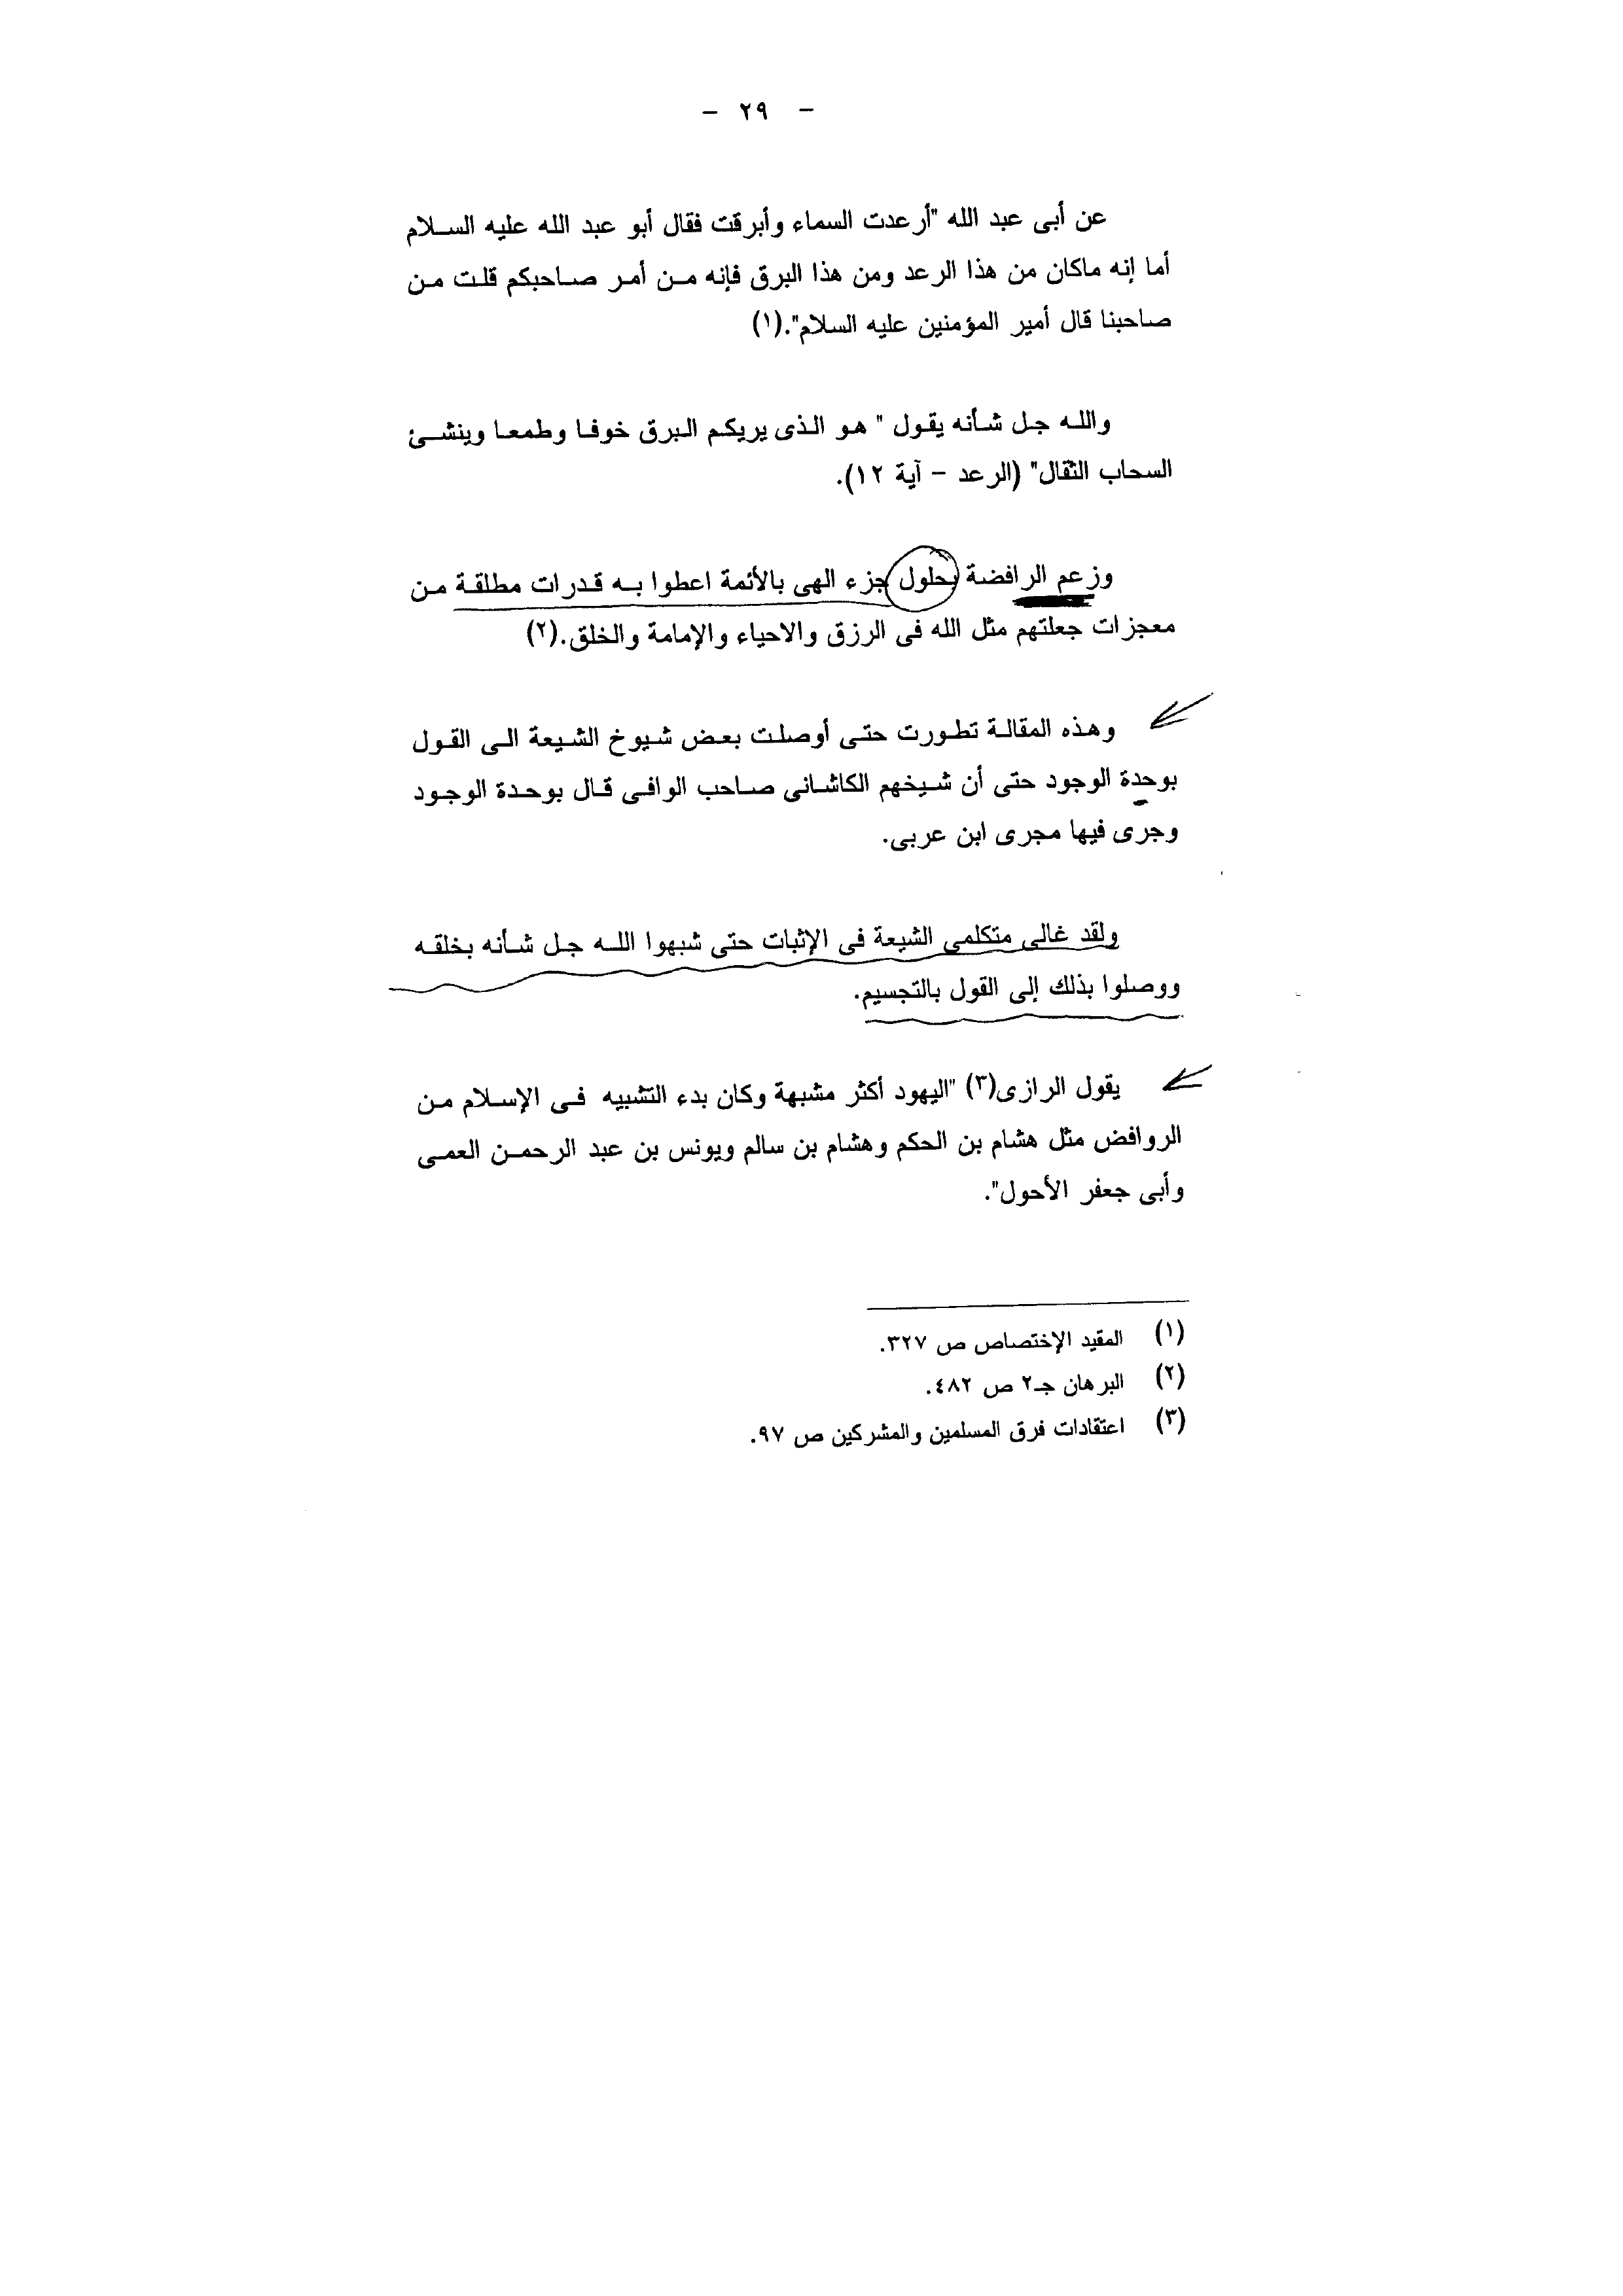 - ٢٩ -
عن أبى عبد الله "أرعدت السماء وأبرقت فقال أبو عبد الله عليه السلام
أما إنه ماكان من هذا الرعد ومن هذا البرق فإنه من أمر صاحبكم قلت من
صاحبنا قال أمير المؤمنين عليه السلام".(١)
والله جل شأنه يقول " هو الذى يريكم البرق خوفا وطمعا وينشئ
السحاب الثقال" (الرعد - آية ١٢).
وزعم الرافضة بحلول جزء الهى بالأئمة اعطوا به قدرات مطلقة من
معجزات جعلتهم مثل الله فى الرزق والاحياء والإمامة والخلق.(٢)
وهذه المقالة تطورت حتى أوصلت بعض شيوخ الشيعة الى القول
بوحدة الوجود حتى أن شيخهم الكاشانى صاحب الوافى قال بوحدة الوجود
وجرى فيها مجرى ابن عربى.
ولقد غالى متكلمى الشيعة فى الإثبات حتى شبهوا الله جل شأنه بخلقه
ووصلوا بذلك إلى القول بالتجسيم.
يقول الرازى(٣) "اليهود أكثر مشبهة وكان بدء التشبيه فى الإسلام من
الروافض مثل هشام بن الحكم وهشام بن سالم ويونس بن عبد الرحمن العمى
وأبى جعفر الأحول".
(١) المقيد الإختصاص ص ٣٢٧.
(٢) البرهان جـ٢ ص ٤٨٢.
(٣) اعتقادات فرق المسلمين والمشركين ص ٩٧.